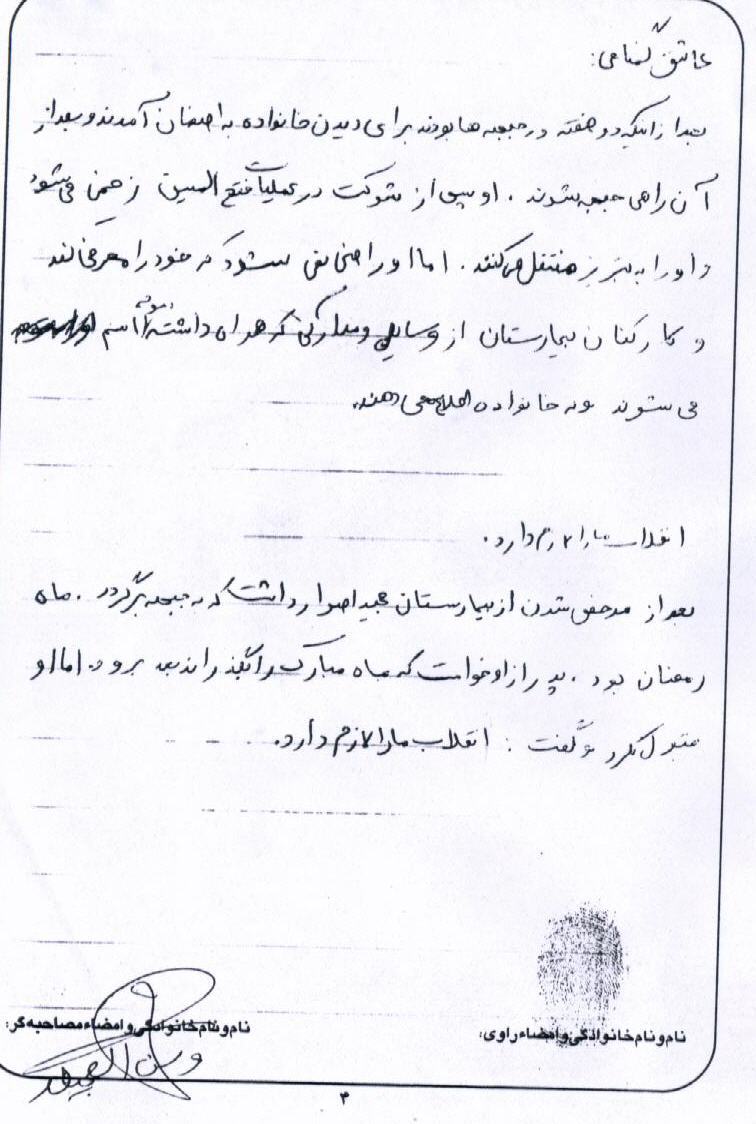 عاشق گمنامی:
بعد از اینکه دو هفته در جبهه ها بودند برای دیدن خانواده به اصفهان آمدند و بعد از
آن راهی جبهه شوند . او پس از شرکت در عملیات فتح المبین زخمی می شود
و او را به تبریز منتقل می کنند . اما او راضی نمی شود که خود را معرفی کند
و کارکنان بیمارستان از وسایل و مدارکی که همراه داشته اسم
می شوند و به خانواده اطلاع می دهند.
انقلاب ما را لازم دارد.
بعد از مرخص شدن از بیمارستان مجید اصرار داشت که به جبهه برگردد . ماه
رمضان بود . پدر از او خواست که ماه مبارک را بگذراند بعد برود. اما او
قبول نکرد و گفت : انقلاب ما را لازم دارد.
نام و نام خانوادگی و امضاء راوی:
نام و نام خانوادگی و امضاء مصاحبه گر:
۳